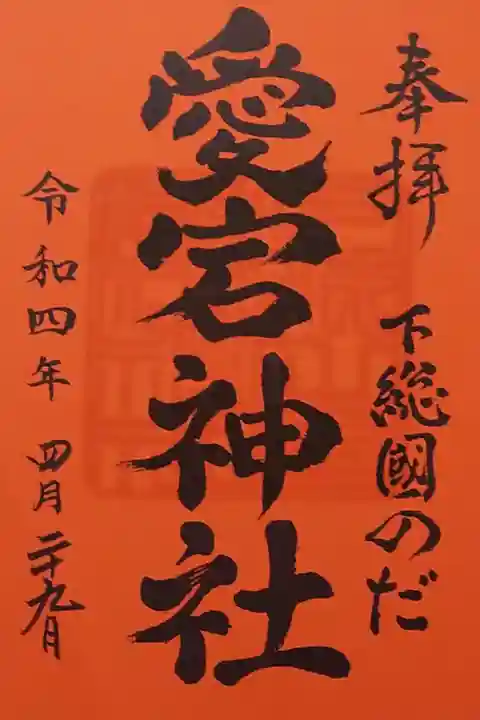 奉拝
下総國のだ
愛宕神社
令和四年 四月二十九日